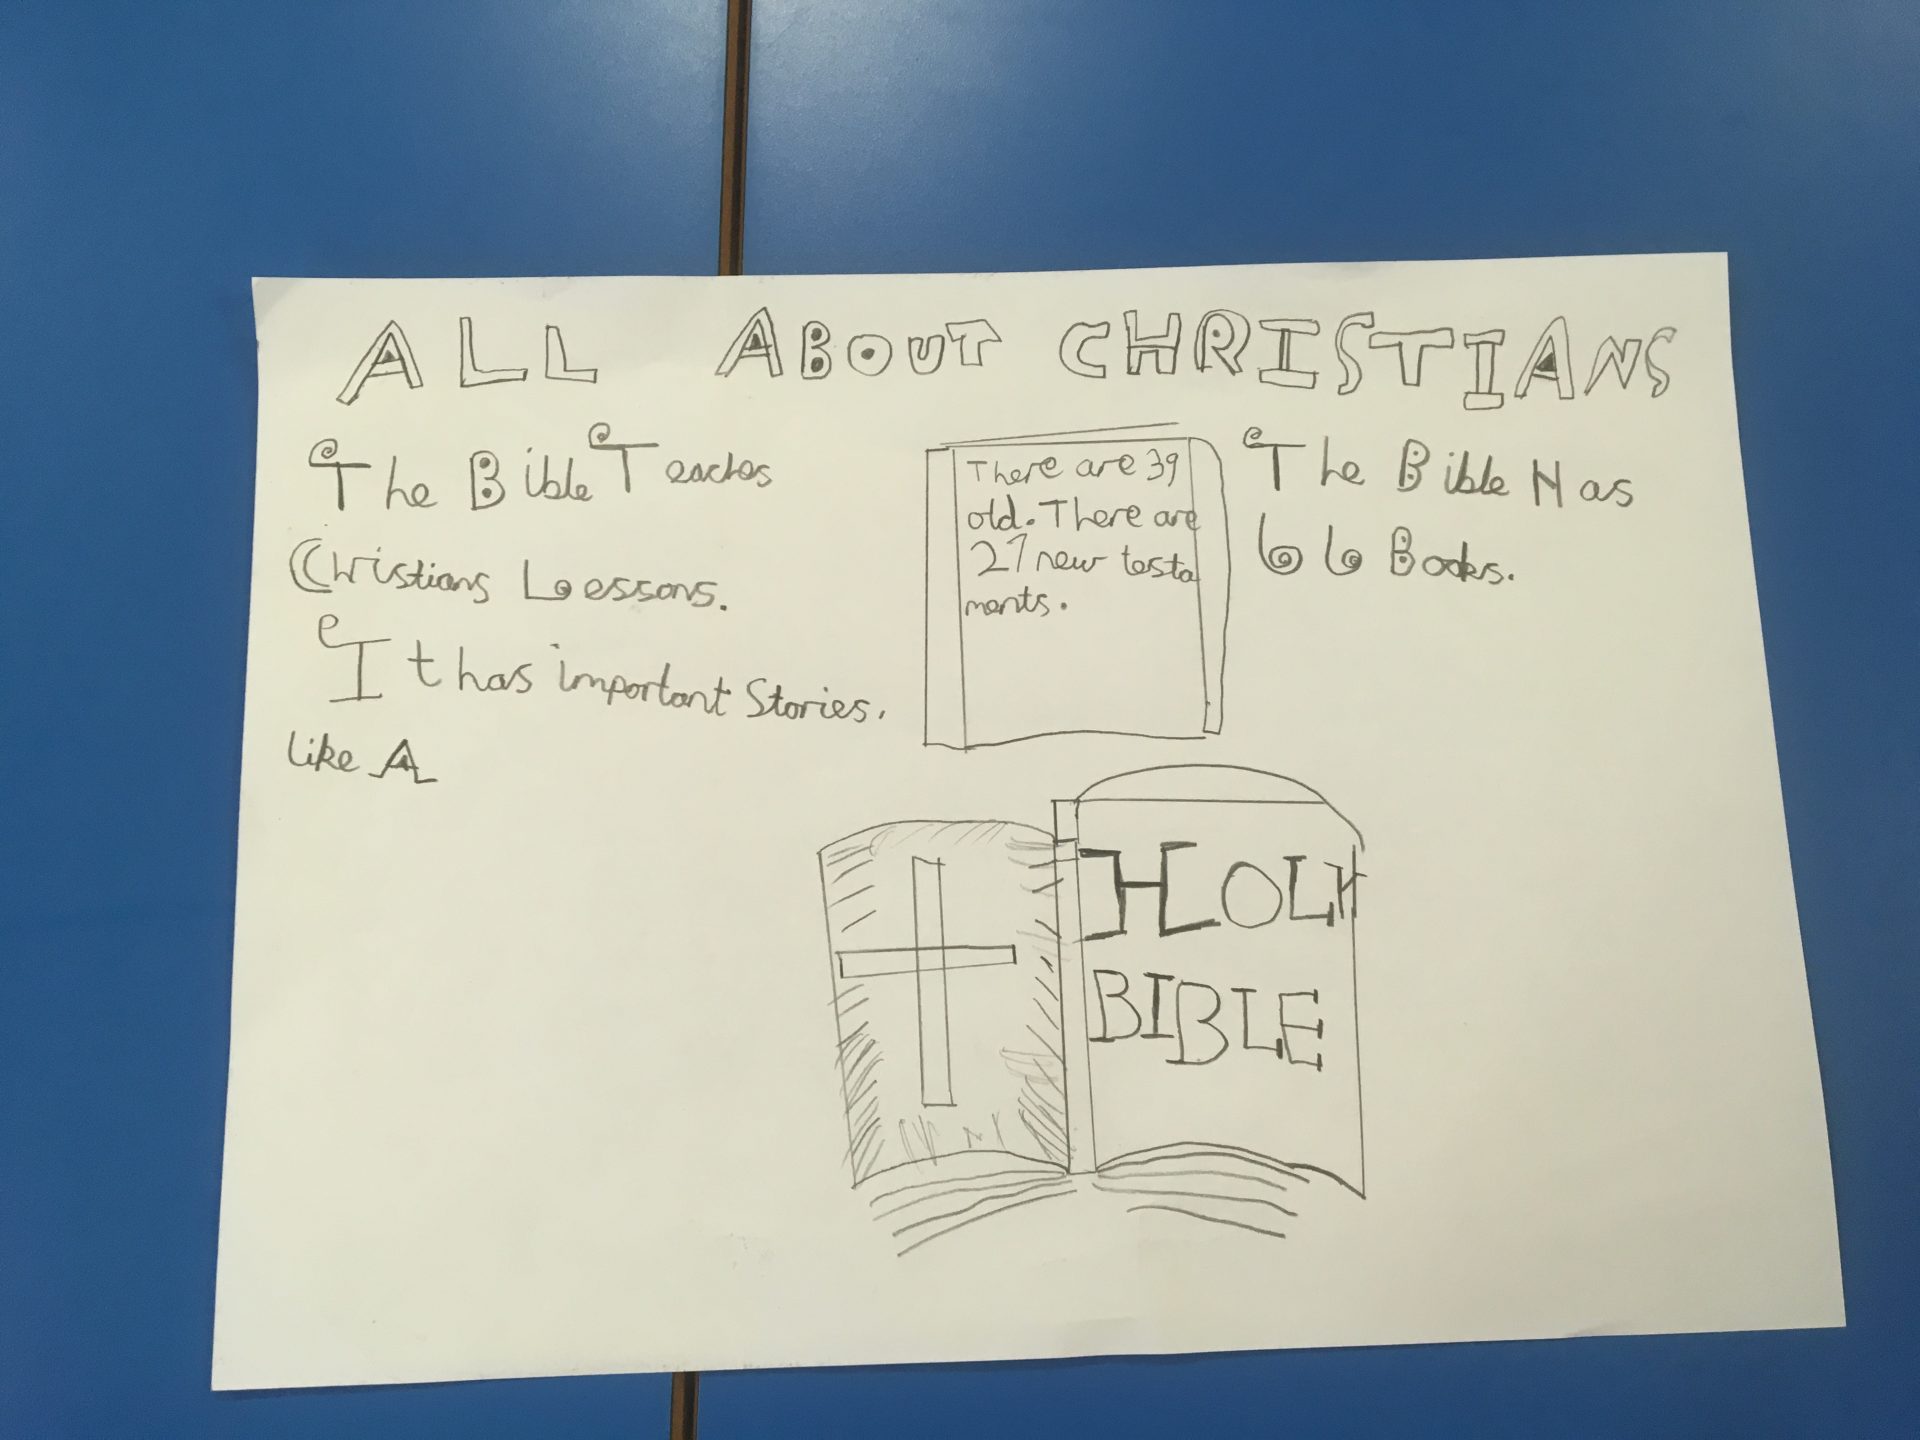 ALL ABOUT CHRISTIANS
The Bible Teaches
Christians Lessons.
It has important Stories.
like A
There are 39
old. There are
27 new testa
ments.
The Bible Has
66 Books.
HOLY
BIBLE